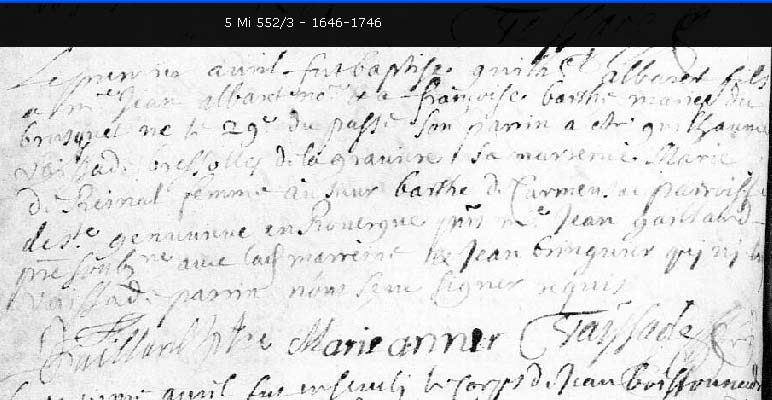 5 Mi 552/3 - 1646-1746
Le premier avril fut baptise guilh albaret fils
a me Jean albaret nore & a françoise barthe mariés du
brusquet ne le 29e du passé son parrin a ete guilhaume
vaissade de la graviere sa marrenie Marie
de Reinal femme au sieur barthe de Carmensac parroisse
de ste genevieve en Rouergue pnts me Jean gaillard
pre soubne avec lad marrenie & Jean bringuier qui ni le
vaissade parrin n'ont seu signer requis
Gaillard ptre Marie anner Vaissade
avril fut enseveli le corps de Jean boissonnade